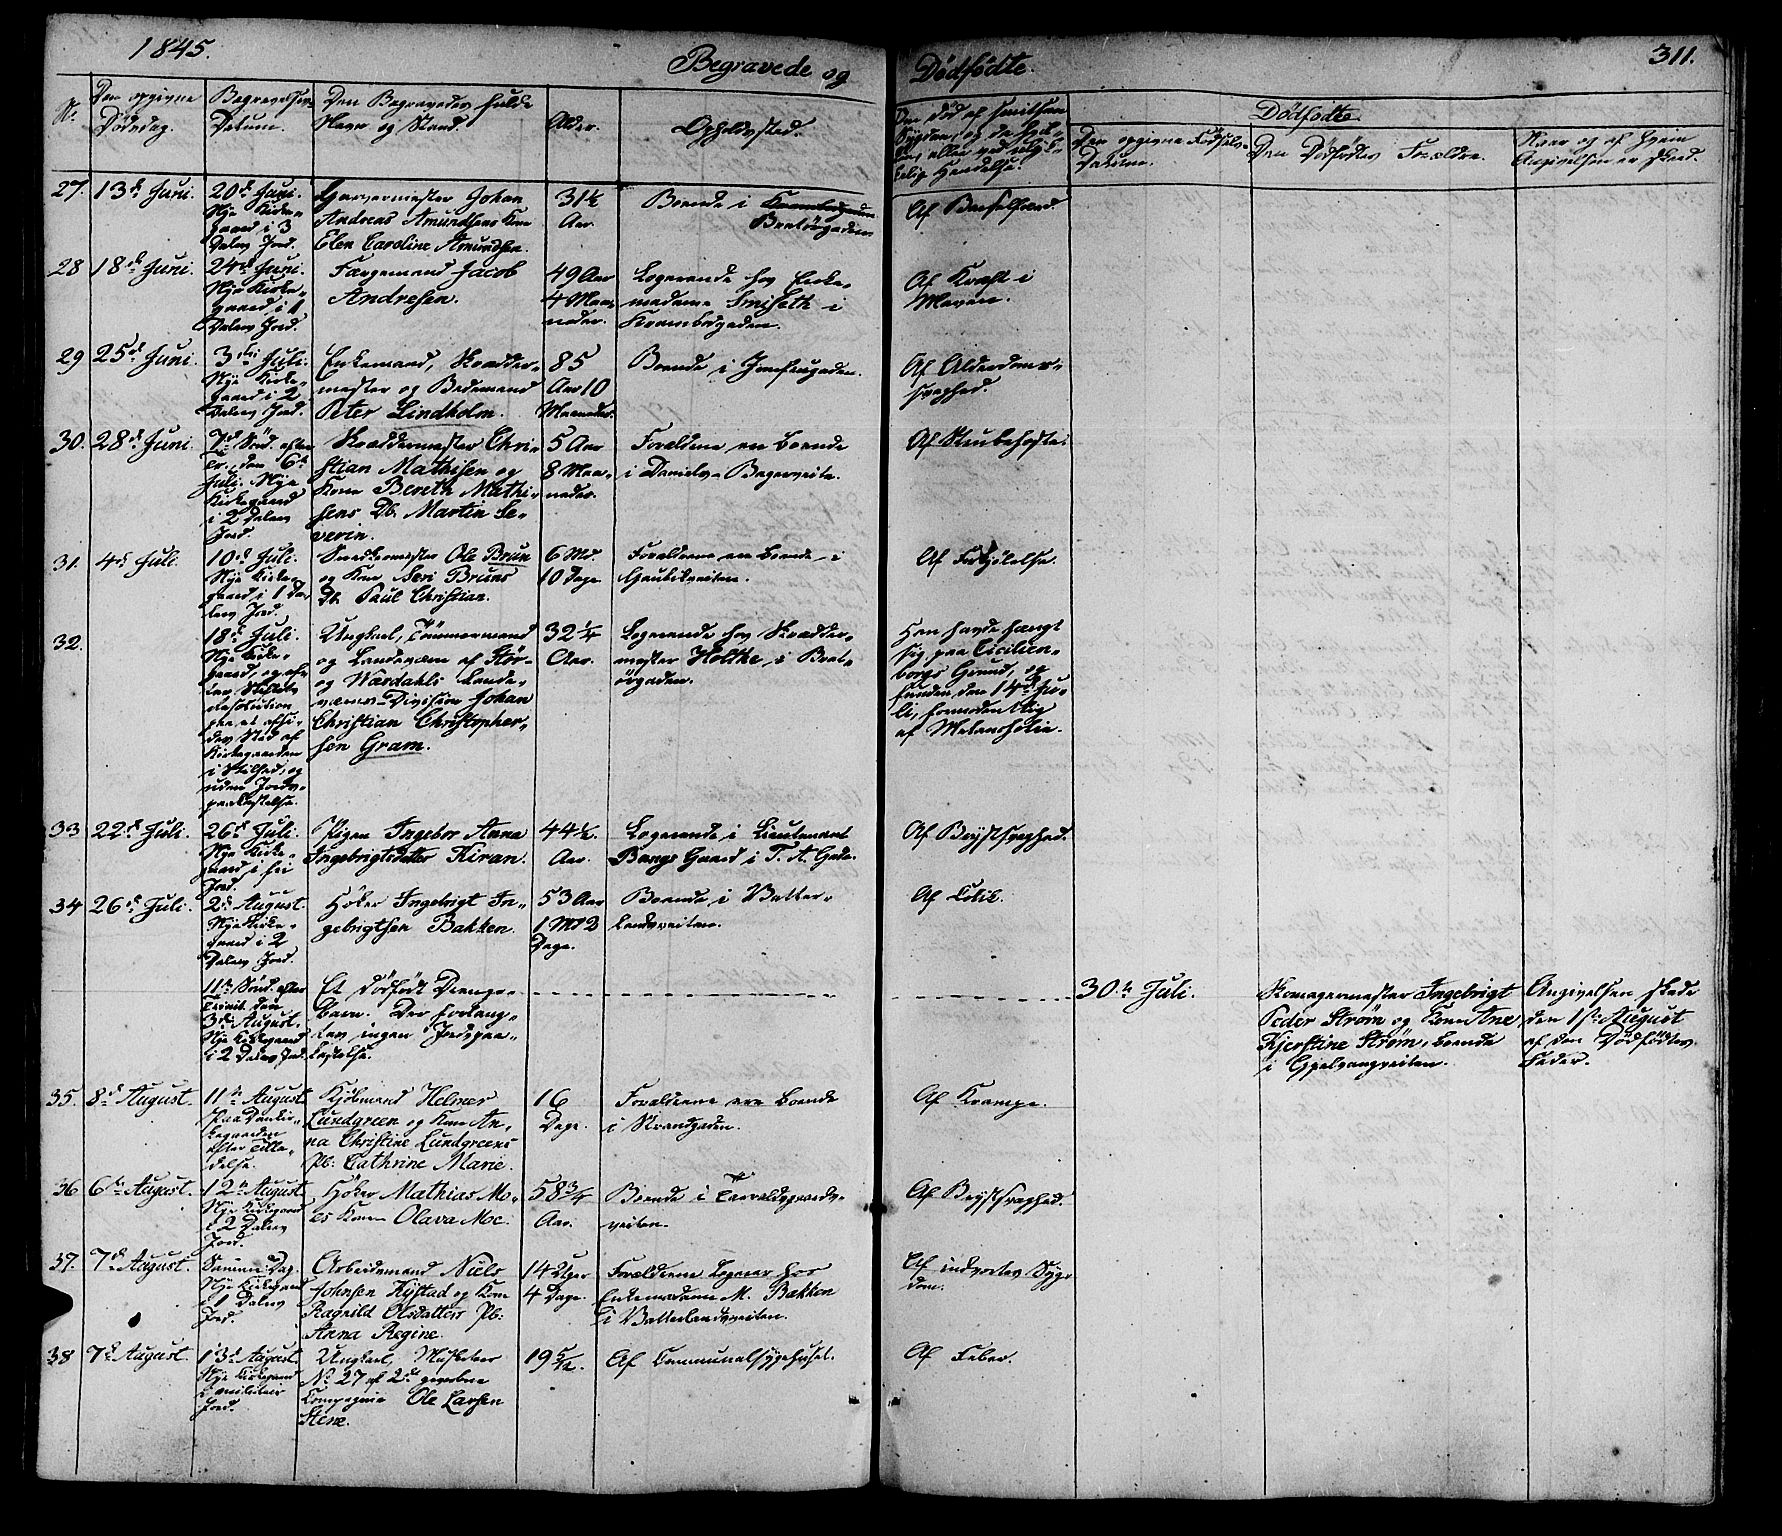 1845.
Begravede og
Dødfødte.
311.
No.
Den opgivne
Dødsdag.
Begravelses
Datum.
Den Begravedes fulde
Navn og Stand.
Alder.
Opholdssted.
Dødfødte.
Den opgivne Fødsels-
Datum.
Den Dødfødtes Forældre.
Naar og af hvem
Angivelsen er skeed.
27.
13de Juni.
20de Juni.
Nye Kirke-
gaard i 3
Dalers Jord.
Garvermester Johan
Andreas Amundsens Kone
Elen Caroline Amundsen.
31½
Aar.
Boende i
Bratørgaden
Af Barselfeber.
28
18de Juni.
24de Juni.
Nye Kirke-
gaard i 1
Dalers Jord.
Fangemand Jacob
Andresen.
49 Aar
4 Maa-
neder.
Logerende hos Enke-
madame Smiseth i
Krambodgaden.
Af Kræft i
Maven.
29
25de Juni.
3die Juli.
Nye Kirke-
gaard i 2
Dalers Jord.
Enkemand, Skrædder-
mester og Bedemand
Peter Lindholm.
85
Aar 10
Maaneder.
Boende i Jomfrugaden.
Af Alderdoms-
svaghed.
30.
28de Juni
7de Sønd. efter
Tr., den 6te
Juli. Nye
Kirkegaard
i 2 Dalers
Jord.
Skræddermester Chri-
stian Mathisen og
Kone Bereth Mathi-
sens Db. Martin Se-
verin.
5 Aar
8 Maa-
neder.
Forældrene ere boende
i Daniels-Bagerveite.
Af Strubehoste.
31.
4de Juli.
10de Juli.
Nye Kirke-
gaard i 1 Da-
lers Jord.
Snedkermester Ole Brun
og Kone Seri Bruns
Db. Paul Christian.
6 Md.
10 Dage
Forældrene ere boende i
Gaubækveiten.
Af Forkjølelse.
32.
18de Juli.
Nye Kirke-
gaard, og ef-
ter Stiftets
Resolution
paa et afsi-
des Sted af
Kirkegaarden
i Stilhed, og
uden Jords-
paakastelse.
Ungkarl, Tømmermand
og Landeværn af Stør-
og Værdahls Lande-
værns-Division Johan
Christian Christopher-
sen Gram.
32 ¼
Aar.
Logerende hos Skrædder-
mester Holtke i Brat-
ørgaden.
Han havde hængt
sig paa Cecilien-
borgs Grund, og
funden den 14de Ju-
li, formodentlig
af Melancholie.
33
22de Juli.
26de Juli.
Nye Kirke-
gaard i fri
Jord.
Pigen Ingebor Anna
Ingebrigtsdatter Kiran.
44½.
Aar.
Logerende i Lieutenant
Bangs Gaard i T. A. Gade.
Af Brystsvaghed.
34
26de Juli.
2de August.
Nye Kirke-
gaard i 2
Dalers Jord.
Høker Ingebrigt In-
gebrigtsen Bakken.
53 Aar
1 Md 2
Dage.
Boende i Vatter-
landsveiten.
Af Colik.
11te Sønd. efter
Trinit. den
3die August.
Nye Kirkegaard
i 2 Dalers Jord.
Et dødfødt Drenge-
Barn. Der forlang-
tes ingen Jordpaa-
kastelse.
30te Juli.
Skomagermester Ingebrigt
Peder Strøm og Kone Ane
Kjerstine Strøm, boende
i Eppelvangveiten.
Angivelsen skede
den 1ste August
af den Dødfødtes
Fader.
35.
8de August.
11te August
paa Domkir-
kegaarden
efter Tilla-
delse.
Kjøbmand Helmer
Lundgreen og Kone An-
na Christine Lundgreens
Pb: Cathrine Marie.
16
Dage.
Forældrene ere boende
i Strandgaden.
Af Krampe.
36
6te August.
12te August
Nye Kirkegaard
i 2 Dalers
Jord.
Høker Mathias Mo-
es Kone Olava Moe.
58 ¾
Aar.
Boende i Taraldsgaards-
veiten.
Af Brystsvaghed.
37.
7de August.
Samme Dag.
Nye Kirkegaard
i 1 Dalers
Jord.
Arbeidsmand Niels
Johnsen Kystad og Kone
Ragnild Olsdatters Pb:
Anna Regine.
14 Uger
4 Dage.
Forældrene logerer hos
Enkemadame M. Bakken
i Vatterlandsveiten.
Af indvortes Syg-
dom.
38
7de August.
13de August.
Nye Kirkegaard
i militair
Jord.
Ungkarl, Musketeer
No 27 af 2de gevorbne
Compagnie Ole Larsen
Stene.
19 5/12.
Af Communalsygehuset.
Af Feber.